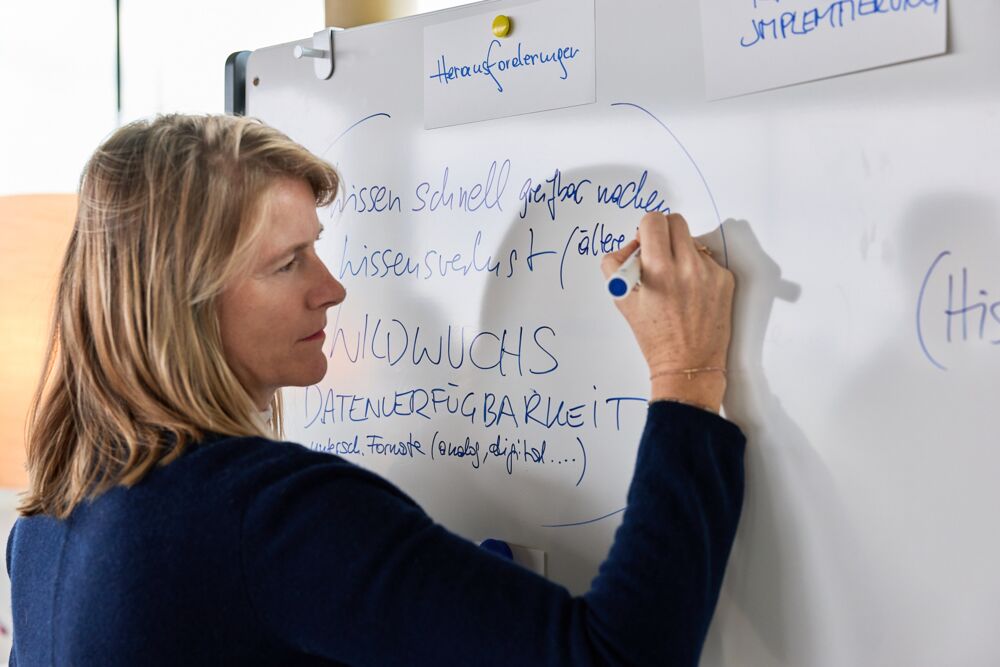 Herausforderungen
JMPLEMTIERUNG
Wissen schnell greifbar machen
Wissensverlust (ältere
WILDWUCHS
DATENVERFÜGBARKEIT
untersch. Formate (analog, digital....)
(His